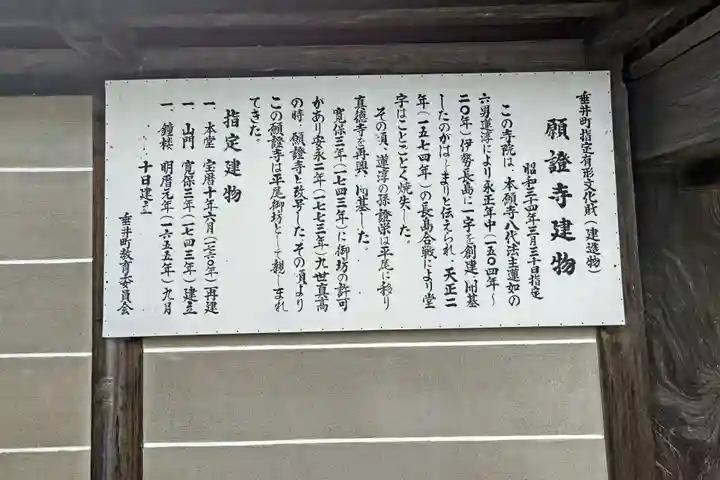 垂井町指定有形文化財（建造物）
願證寺建物
昭和三十四年三月三十日指定
この寺院は、本願寺八代法主蓮如の
六男蓮淳により永正年中（一五〇四年～
二〇年）伊勢長島に一字を創建、開基
したのがはじまりと伝えられ、天正二
年（一五七四年）の長島合戦により堂
字はことごとく焼失した。
その頃、蓮淳の孫證栄は平尾に移り
真徳寺を再興、開基した。
寛保三年（一七四三年）に御坊の許可
があり安永二年（一七七三年）九世真高
の時、願證寺と改号した。その頃より
この願證寺は平尾御坊として親しまれ
てきた。
指定建物
一、本堂 宝暦十年六月（一七六〇年）再建
一、山門 寛保三年（一七四三年）建立
一、鐘楼 明暦元年（一六五五年）九月
十日建立
垂井町教育委員会